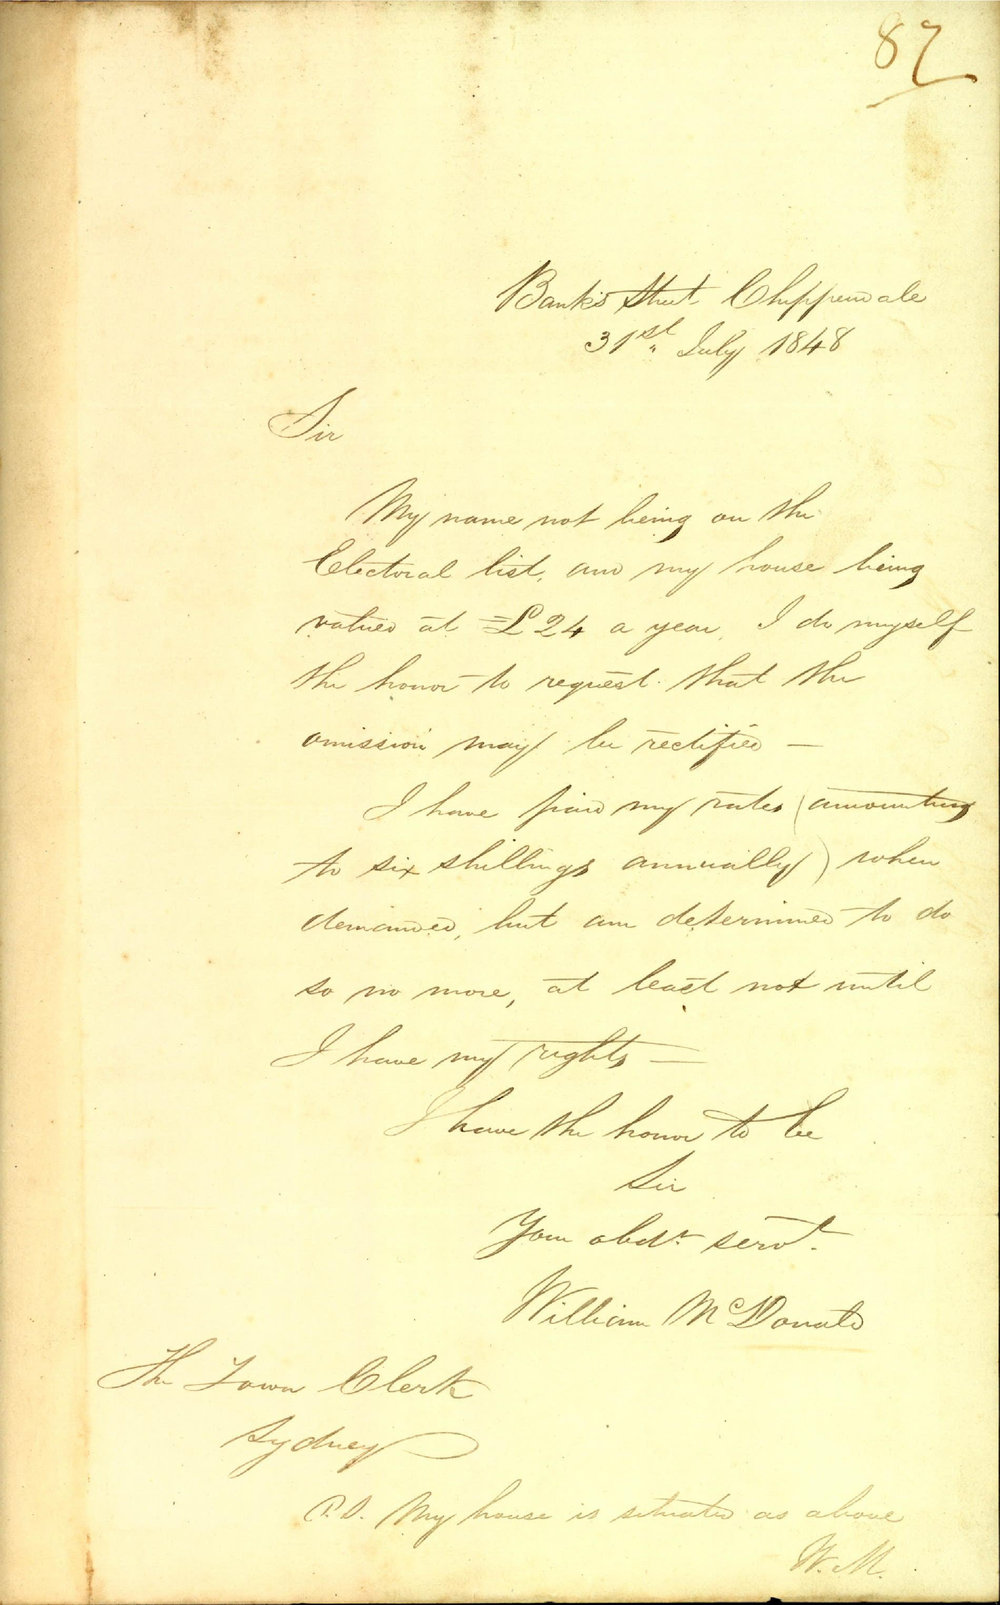 87
Bank's Street Chippendale
31st July 1848
Sir
My name not being on the
Electoral list, and my house being
valued at £24 a year, I do myself
the honor to request that the
omission may be rectified —
I have paid my rates (amounting
to six shillings annually) when
demanded, but am determined to do
so no more, at least not until
I have my rights —
I have the honor to be
Sir
Your obdt servt.
William McDonald
The Town Clerk
Sydney
P.S. My house is situated as above
W. M.